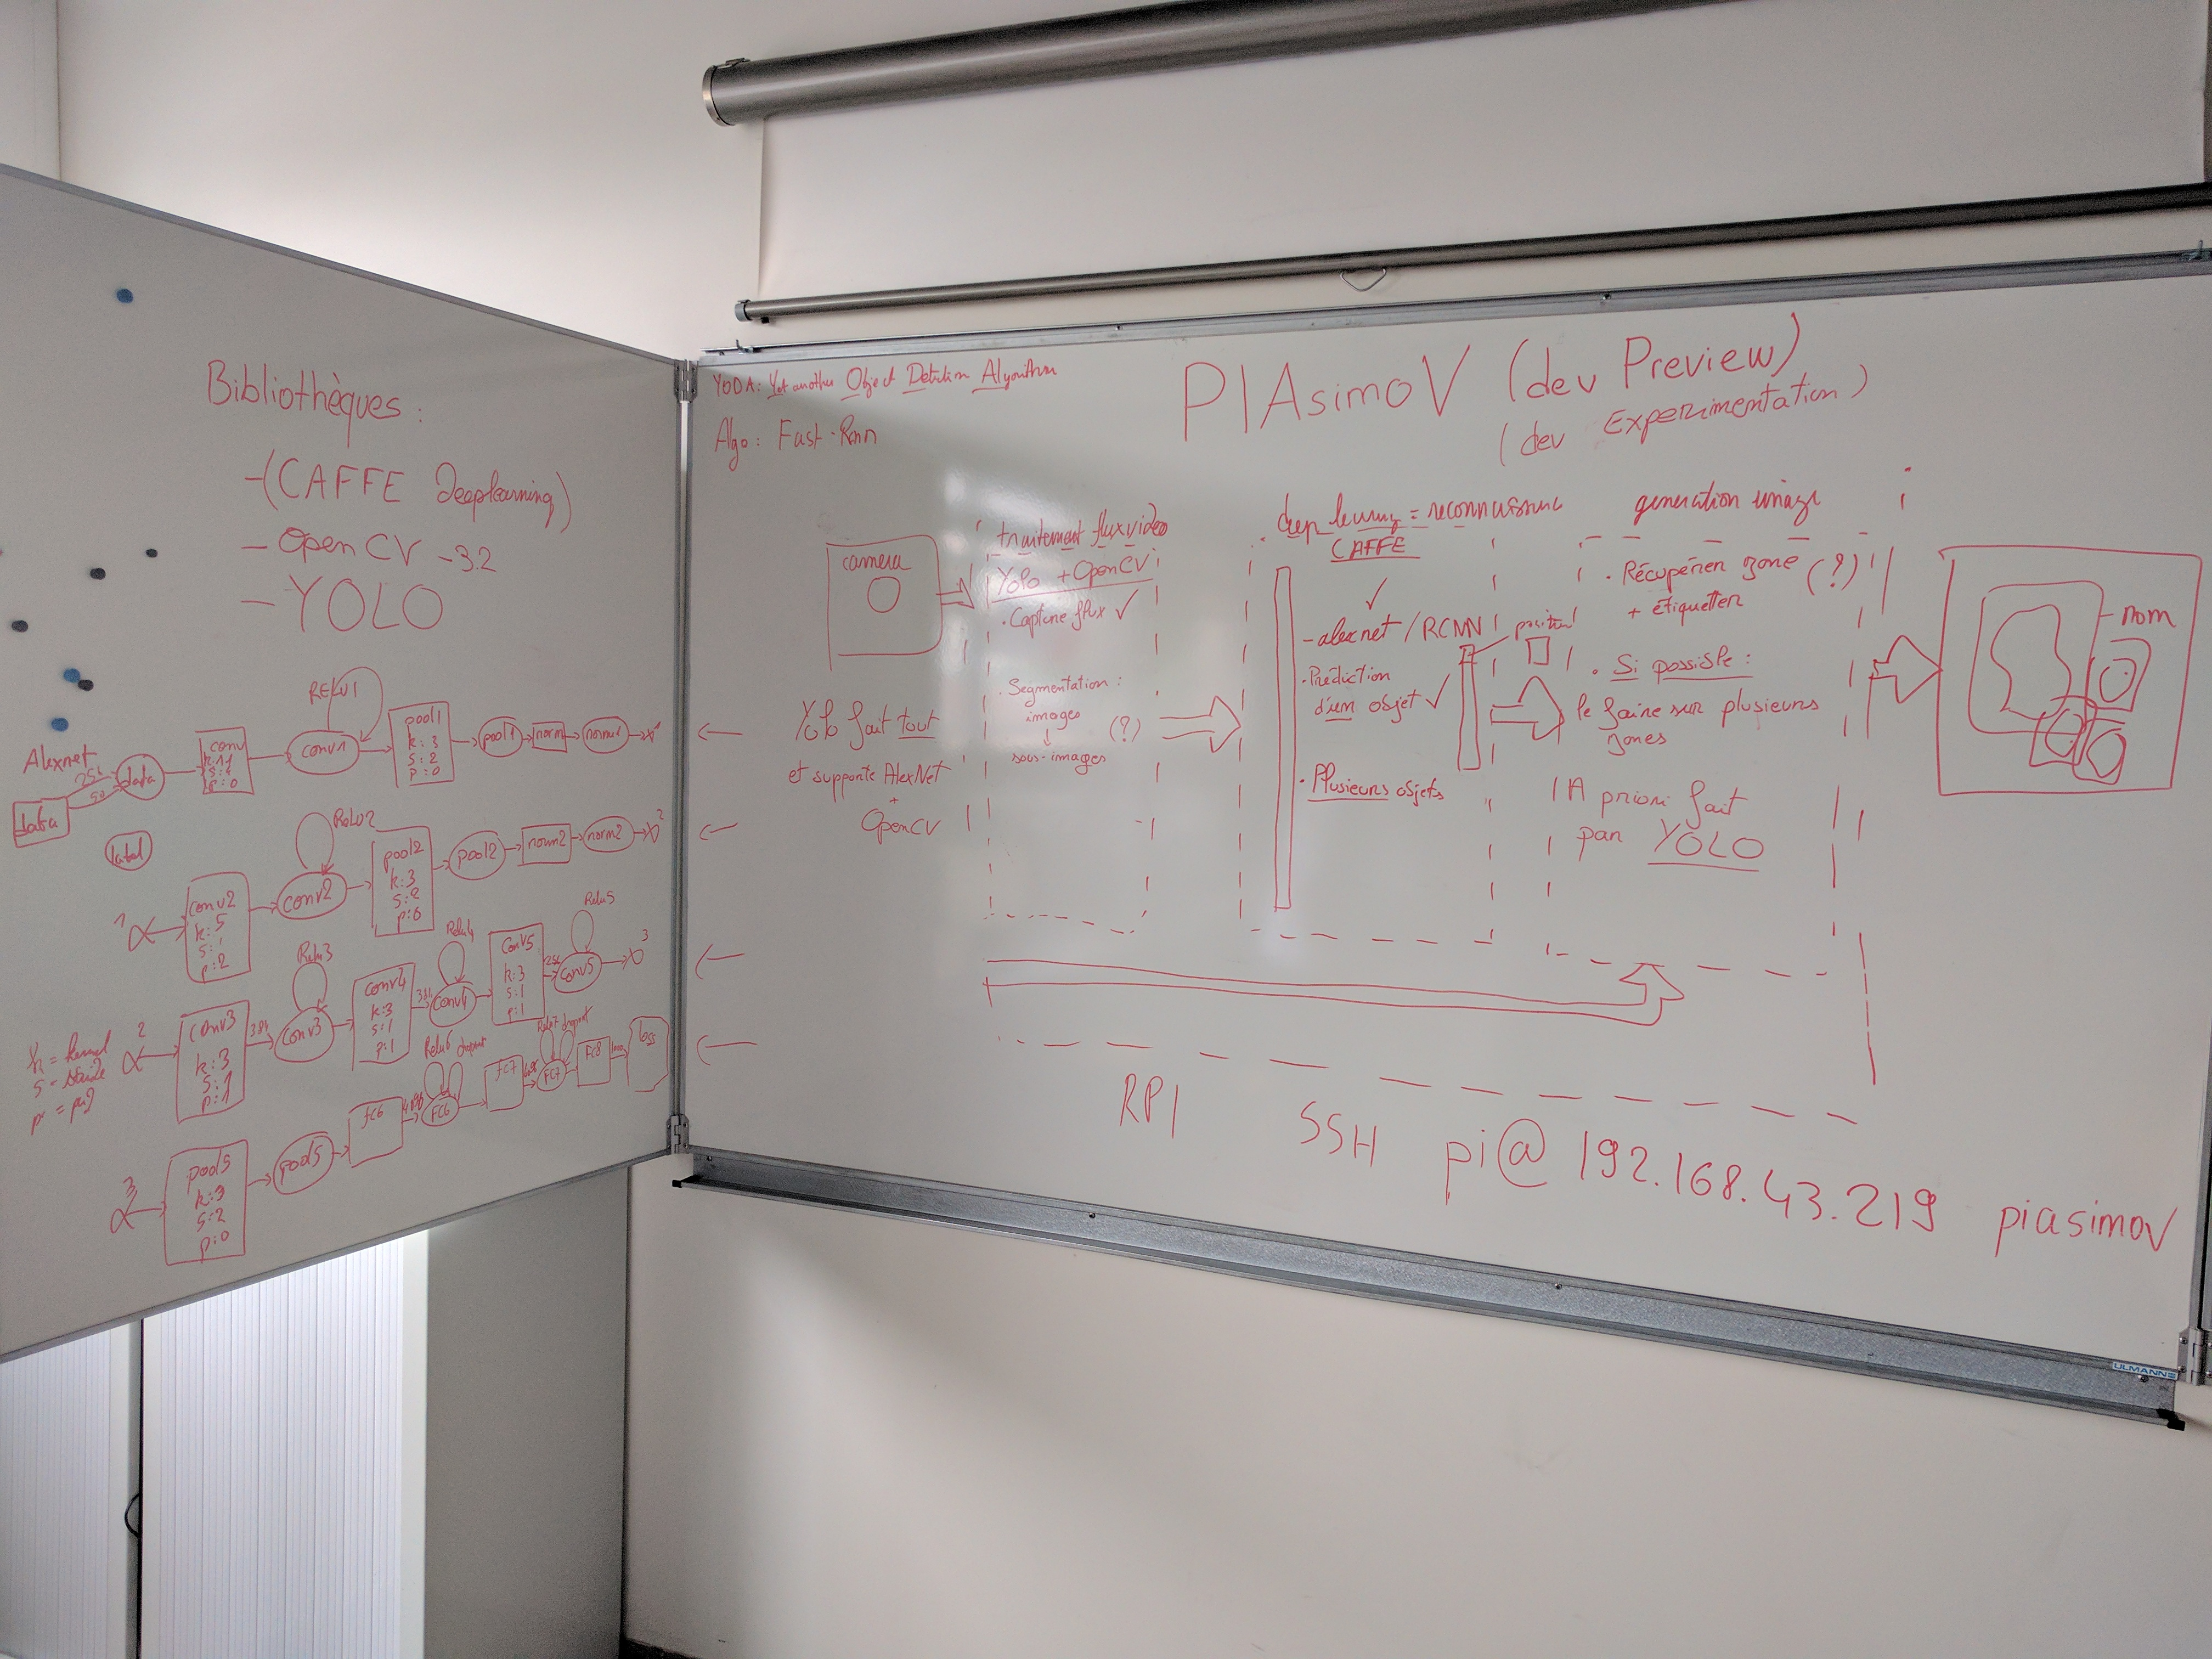 Bibliothèques :
-(CAFFE Deeplearning)
- OpenCV -3.2
- YOLO
Alexnet
data
256
data
label
conv
k:11
s:4
p:0
RELU1
conv1
pool1
k:3
s:2
p:0
pool1
norm
norm1
1
1
conv2
k:5
s:1
p:2
ReLU2
conv2
pool2
k:3
s:2
p:0
pool2
norm2
norm2
2
k = kernel
s = stride
2
conv3
k:3
s:1
p:1
384
Relu3
conv3
conv4
k:3
s:1
p:1
384
Relu4
conv4
Conv5
k:3
s:1
p:1
256
Relu5
conv5
3
3
pool5
k:3
s:2
p:0
pool5
fc6
Relu6 dropout
FC6
fc7
Relu7 dropout
FC7
FC8
loss
YODA: Yet another Object Detection Algorithm
Algo: Fast-Rnn
PIAsimoV (dev Preview)
(dev Experimentation)
camera
traitement flux video
Yolo + OpenCV
. Capture flux ✓
. Segmentation :
images
↓
sous-images
(?)
Yolo fait tout
et supporte AlexNet
+
OpenCV
deep learning = reconnaissance
CAFFE
✓
- alexnet / RCNN
. Prédiction
d'un objet ✓
. Plusieurs objets
position
generation image
. Récupérer zone (?)
+ étiquetter
. Si possible :
le faire sur plusieurs
zones
A priori fait
par YOLO
nom
RPI SSH pi@192.168.43.219 piasimov
ULMANN